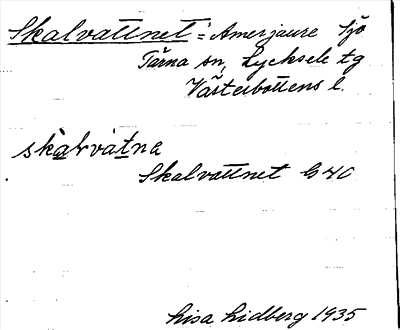 Skalvattnet = Amerjaure Sjö
Tärna sn, Lycksele tg
Västerbottens l.
skalvatna
Skalvattnet G40
Lisa Lidberg 1935